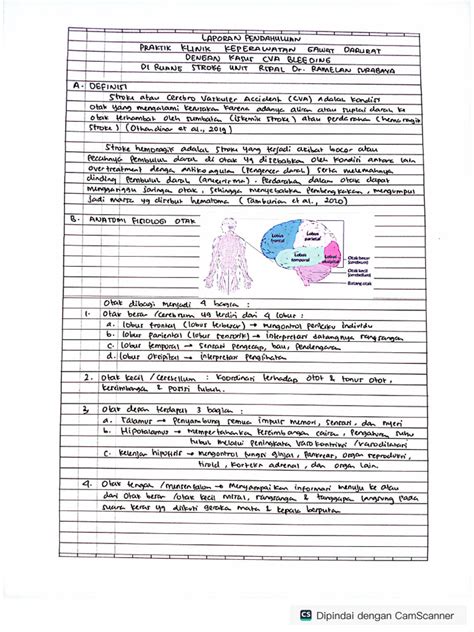 LAPORAN PENDAHULUAN
PRAKTIK KLINIK KEPERAWATAN GAWAT DARURAT
DENGAN KASUS CVA BLEEDING
DI RUANG STROKE UNIT RSPAL Dr. RAMELAN SURABAYA
A. DEFINISI
Stroke atau Cerebro Vaskuler Accident (CVA) Adalah kondisi
otak yang mengalami kerusakan karena adanya aliran atau suplai darah ke
otak terhambat oleh sumbatan (iskemik stroke) atau perdarahan (hemorragik
stroke) (et al., 2019)
Stroke hemoragik adalah stroke yang terjadi akibat bocor atau
Pecahnya Pembuluh darah di otak yg disebabkan oleh kondisi antara lain
overtreatment dengan antikoagulan (Pengencer darah) serta melemahnya
dinding Pembuluh darah (aneurisma). Perdarahan dalam otak dapat
mengganggu jaringan otak, sehingga menyebabkan Pembengkakan, mengumpul
jadi massa yg disebut hematoma (et al., 2020)
B. ANATOMI FISIOLOGI OTAK
Lobus frontal
Lobus parietal
Lobus temporal
Lobus oksipital
Otak besar (cerebrum)
Otak kecil (cerebellum)
Batang otak
Otak dibagi menjadi 4 bagian :
1. Otak besar /cerebrum yg terdiri dari 4 lobus :
a. lobus frontal (lobus terbesar) → mengontrol perilaku individu
b. lobus pariental (lobus sensorik) → interpretasi datangnya rangsangan
c. lobus temporal → sensasi pengecap, bau, pendengaran
d. lobus oksipital → interpretasi penglihatan
2. Otak kecil /cerebellum : koordinasi terhadap otot & tonus otot,
keseimbangan & posisi tubuh.
3. Otak depan terdapat 3 bagian :
a. Talamus → Penyambung semua impuls memori, sensasi, dan nyeri
b. Hipotalamus → mempertahankan keseimbangan cairan, Pengaturan suhu
tubuh melalui peningkatan vasokontriksi /vasodilatasi
c. kelenjar hipofisis → mengontrol fungsi ginjal, pankreas, organ reproduksi,
tiroid, korteks adrenal, dan organ lain.
4. Otak tengah /mensenfalon → Menyampaikan informasi menuju ke atau
dari otak besar /otak kecil, rangsangan & tanggapan langsung Pada
suara keras yg diikuti gerakan mata & kepala berputar.
CS Dipindai dengan CamScanner